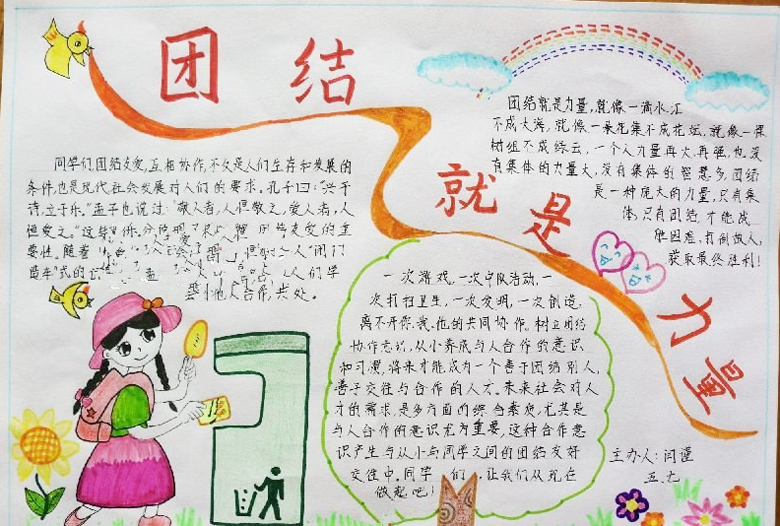 团结
就是
力量
同学们,团结友爱,互相协作,不仅是人们生存和发展的
条件,也是现代社会发展对人们的要求.孔子曰:"兴于
诗,立于乐."孟子也说过"敬人者,人恒敬之,爱人者,人
恒爱之."这
要性.随着
人们学
人合作,共处。
团结就是力量,就像一滴水汇
不成大海,就像一朵花集不成花坛,就像一棵
树组不成绿云,一个人力量再大,再强,也没
有集体的力量大,没有集体的智慧多.团结
是一种庞大的力量,只有集
体,只有团结才能战
胜困难,打倒敌人,
获取最终胜利!
一次游戏,一次中队活动,一
次打扫卫生,一次发明,一次创造,
离不开你.我.他的共同协作.树立团结
协作意识,从小养成与人合作的意识
和习惯,将来才能成为一个善于团结别人,
善于交往与合作的人才.未来社会对人
才的需求,是多方面的综合素质,尤其是
与人合作的意识尤为重要,这种合作意
识产生与从小与同学之间的团结友好
交往中.同学们,让我们从现在
做起吧!
主办人:闫谨
五.七